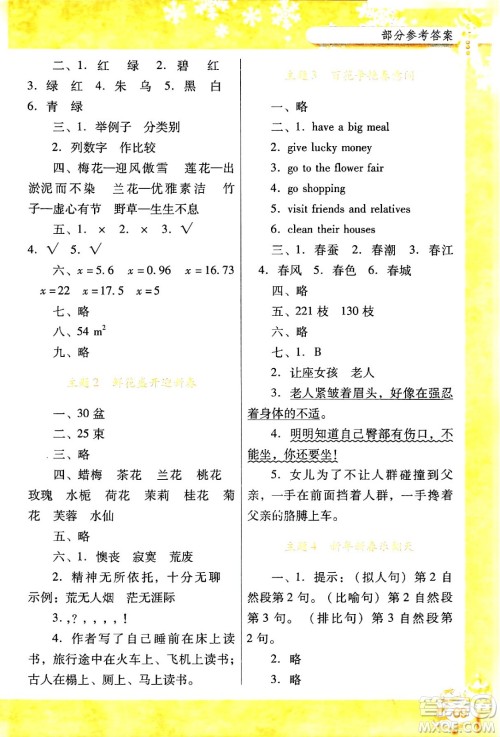 部分参考答案
二、1. 红 绿 2. 碧 红
3. 绿 红 4. 朱 乌 5. 黑 白
6. 青 绿
三、1. 举例子 分类别
2. 列数字 作比较
四、梅花—迎风傲雪 莲花—出
淤泥而不染 兰花—优雅素洁 竹
子—虚心有节 野草—生生不息
五、1. × 2. × 3. √
4. √ 5. √
六、x=5.6 x=0.96 x=16.73
x=22 x=17.5 x=5
七、略
八、54 m²
九、略
主题2 鲜花盛开迎新春
一、30 盆
二、25 束
三、略
四、蜡梅 茶花 兰花 桃花
玫瑰 水栀 荷花 茉莉 桂花 菊
花 芙蓉 水仙
五、略
六、1. 懊丧 寂寞 荒废
2. 精神无比兴奋，十分投入。
例：荒无人烟 荒山野岭
3. ，？，！，，，！
4. 作者写了自己睡前在床上读
书，旅行途中在火车上、飞机上读书；
古人在马上、船上、床上读书。
主题3 百花争艳春意闹
一、略
二、1. have a big meal
2. give lucky money
3. go to the flower fair
4. go shopping
5. visit friends and relatives
6. clean their houses
三、1. 春蚕 2. 春潮 3. 春江
4. 春风 5. 春色 6. 春城
四、略
五、221 枝 130 枝
六、略
七、1. B
2. 让座女孩 老人
3. 老人紧皱着眉头，好像在强忍
着身体的不适。
4. 明明知道自己臀部有伤口，不
能坐，你还要坐！
5. 女儿为了不让人群碰撞到父
亲，一手在前面挡着人群，一手搀着
父亲的胳膊上车。
主题4
一、1. 提示：（拟人句）第 2 自
然段第 2 句。（比喻句）第 2 自然段
第 1 句。（排比句）第 4 自然段第
2 句。
2. 略
3. 略